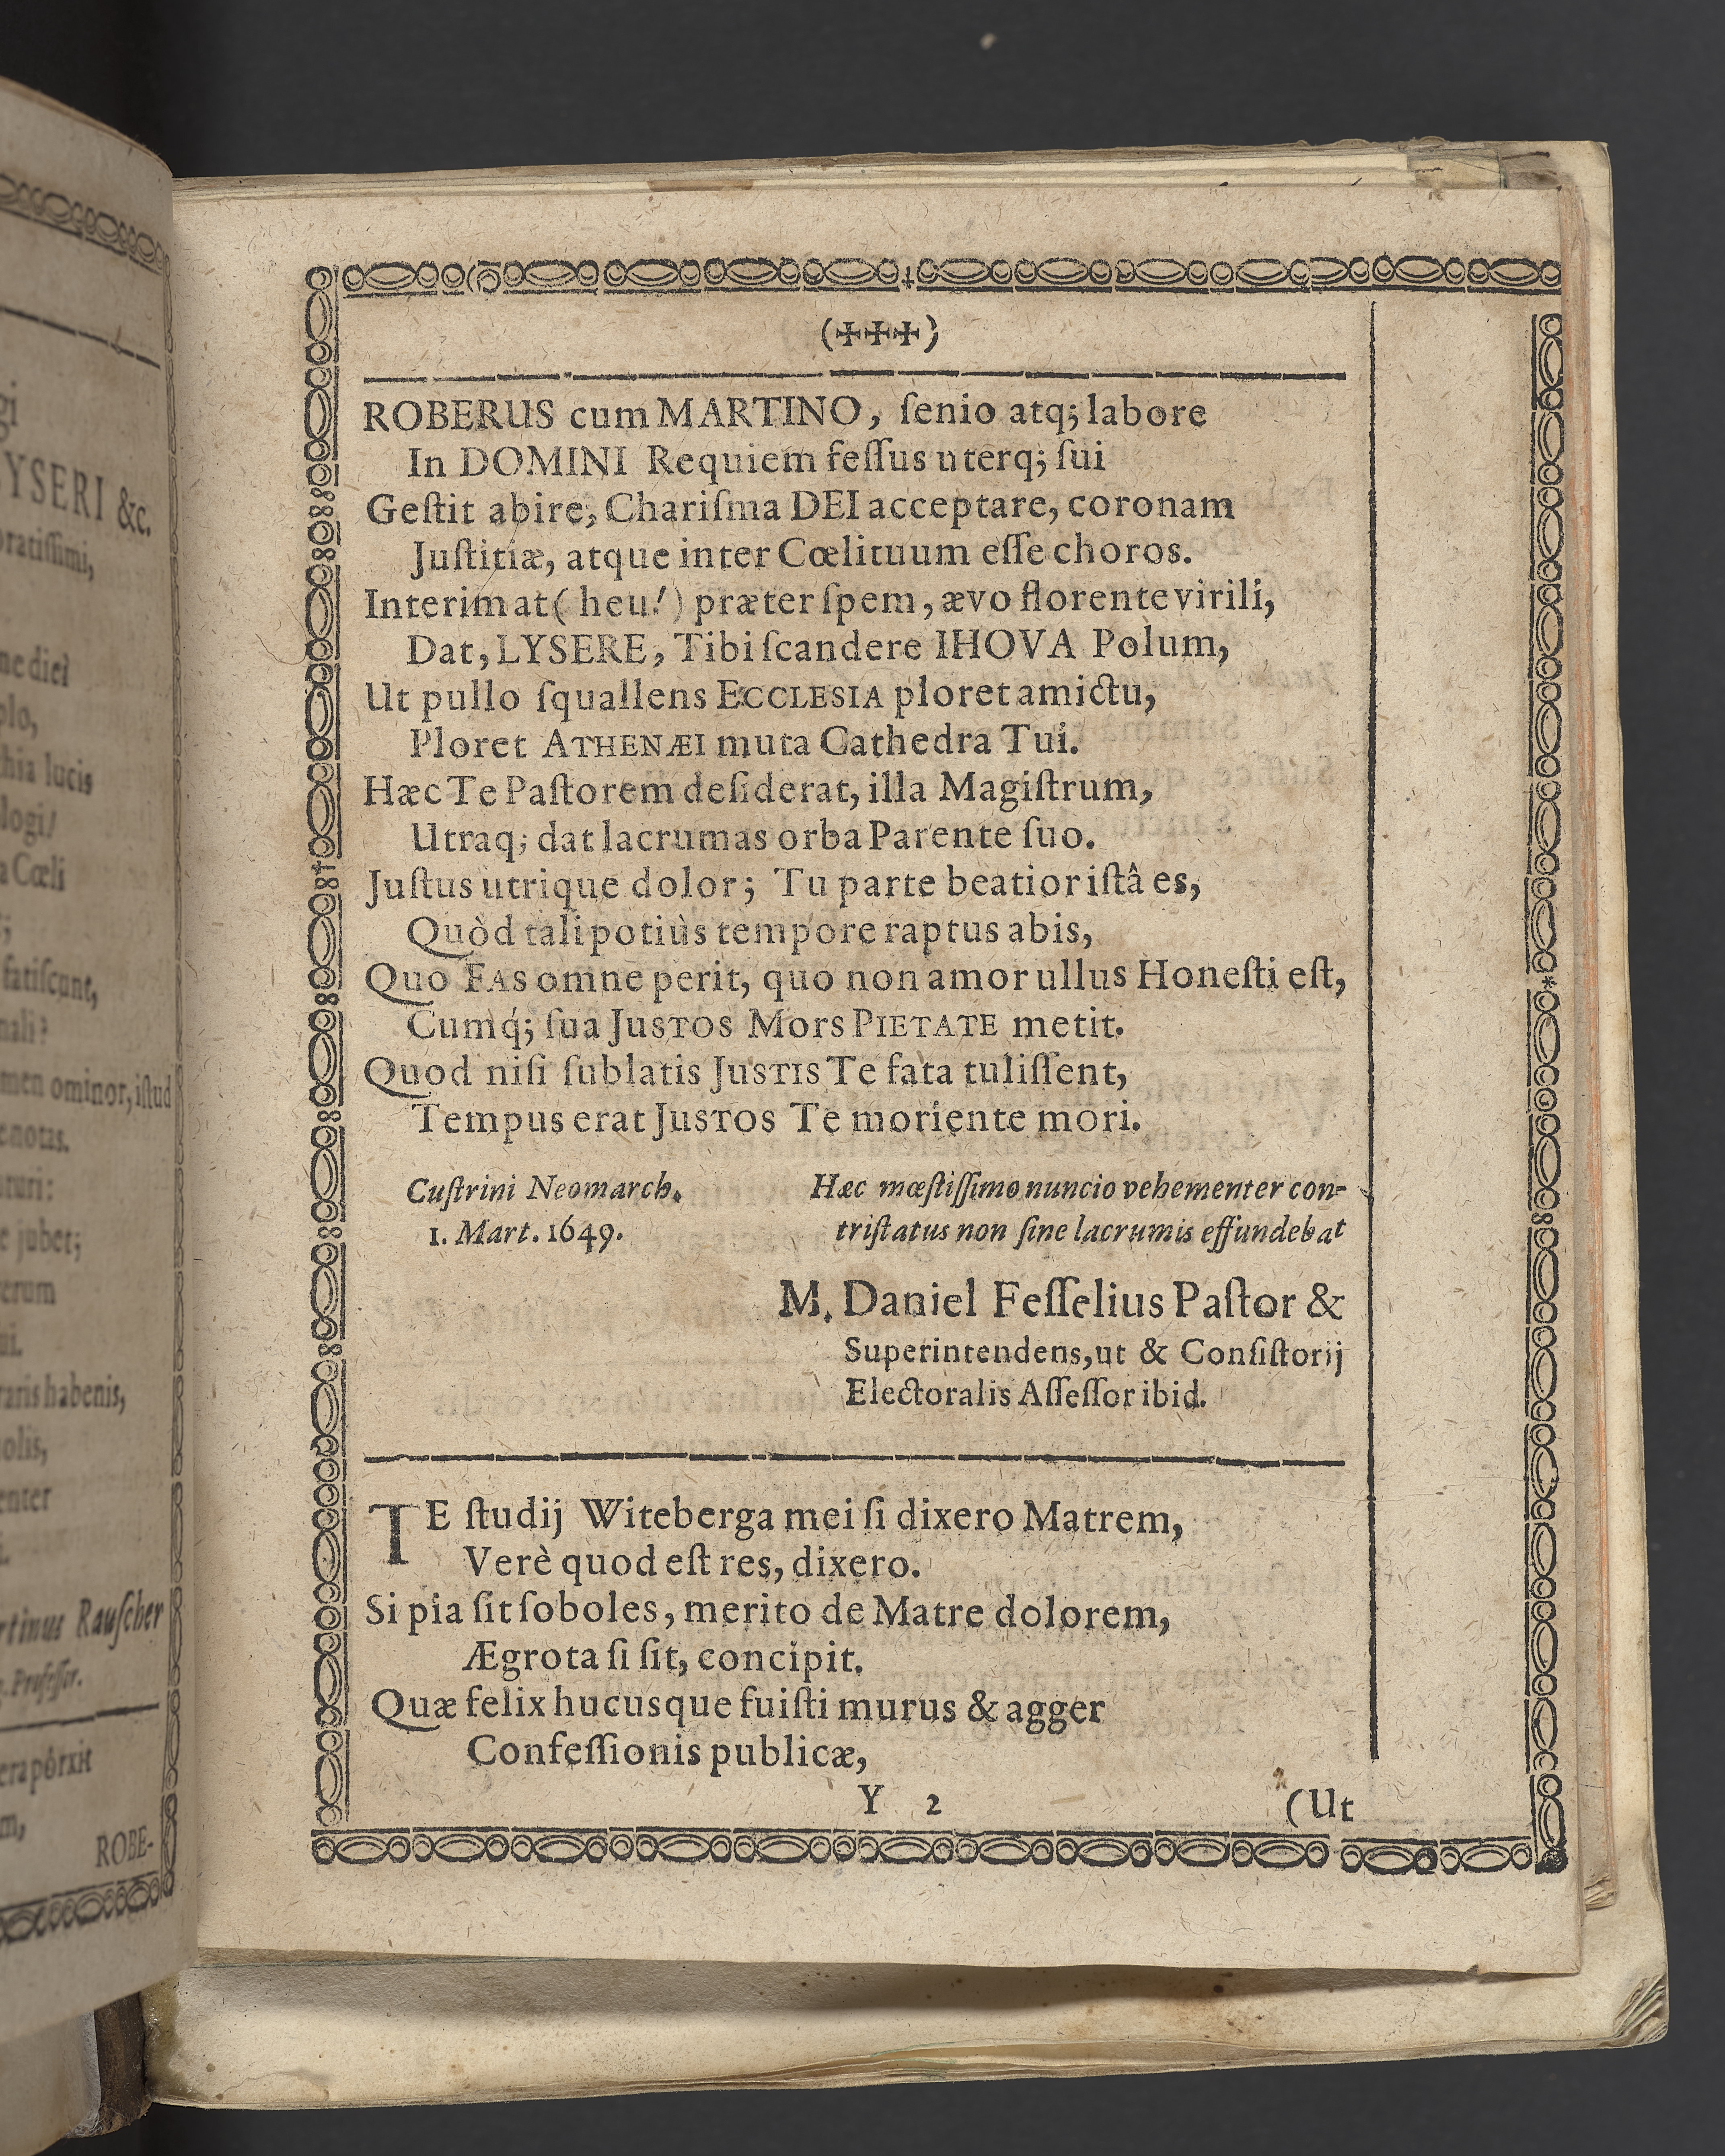 gi
LYSERI &c.
ne diei
olo,
lucis
logi!
Cœli
fatiſcunt,
ominor, iſtud
jubet;
habenis,
Rauſcher
Profeſſor.
ROBE-
(✠✠✠)
ROBERUS cum MARTINO, ſenio atq; labore
In DOMINI Requiem feſſus uterq; ſui
Geſtit abire, Chariſma DEI acceptare, coronam
Juſtitiæ, atque inter Cœlituum eſſe choros.
Interim at (heu!) præter ſpem, ævo florente virili,
Dat, LYSERE, Tibi ſcandere IHOVA Polum,
Ut pullo ſquallens ECCLESIA ploret amictu,
Ploret ATHENÆI muta Cathedra Tui.
Hæc Te Paſtorem deſiderat, illa Magiſtrum,
Utraq; dat lacrumas orba Parente ſuo.
Juſtus utrique dolor; Tu parte beatior iſtâ es,
Quòd tali potiùs tempore raptus abis,
Quo FAS omne perit, quo non amor ullus Honeſti eſt,
Cumq́; ſua JUSTOS Mors PIETATE metit.
Quod niſi ſublatis JUSTIS Te fata tuliſſent,
Tempus erat JUSTOS Te moriente mori.
Cuſtrini Neomarch.
1. Mart. 1649.
Hæc mœſtiſſimo nuncio vehementer con-
triſtatus non ſine lacrumis effundebat
M. Daniel Feſſelius Paſtor &
Superintendens, ut & Conſiſtorij
Electoralis Aſſeſſor ibid.
TE ſtudij Witeberga mei ſi dixero Matrem,
Verè quod eſt res, dixero.
Si pia ſit ſoboles, merito de Matre dolorem,
Ægrota ſi ſit, concipit.
Quæ felix hucusque fuiſti murus & agger
Confeſſionis publicæ,
Y 2
(Ut